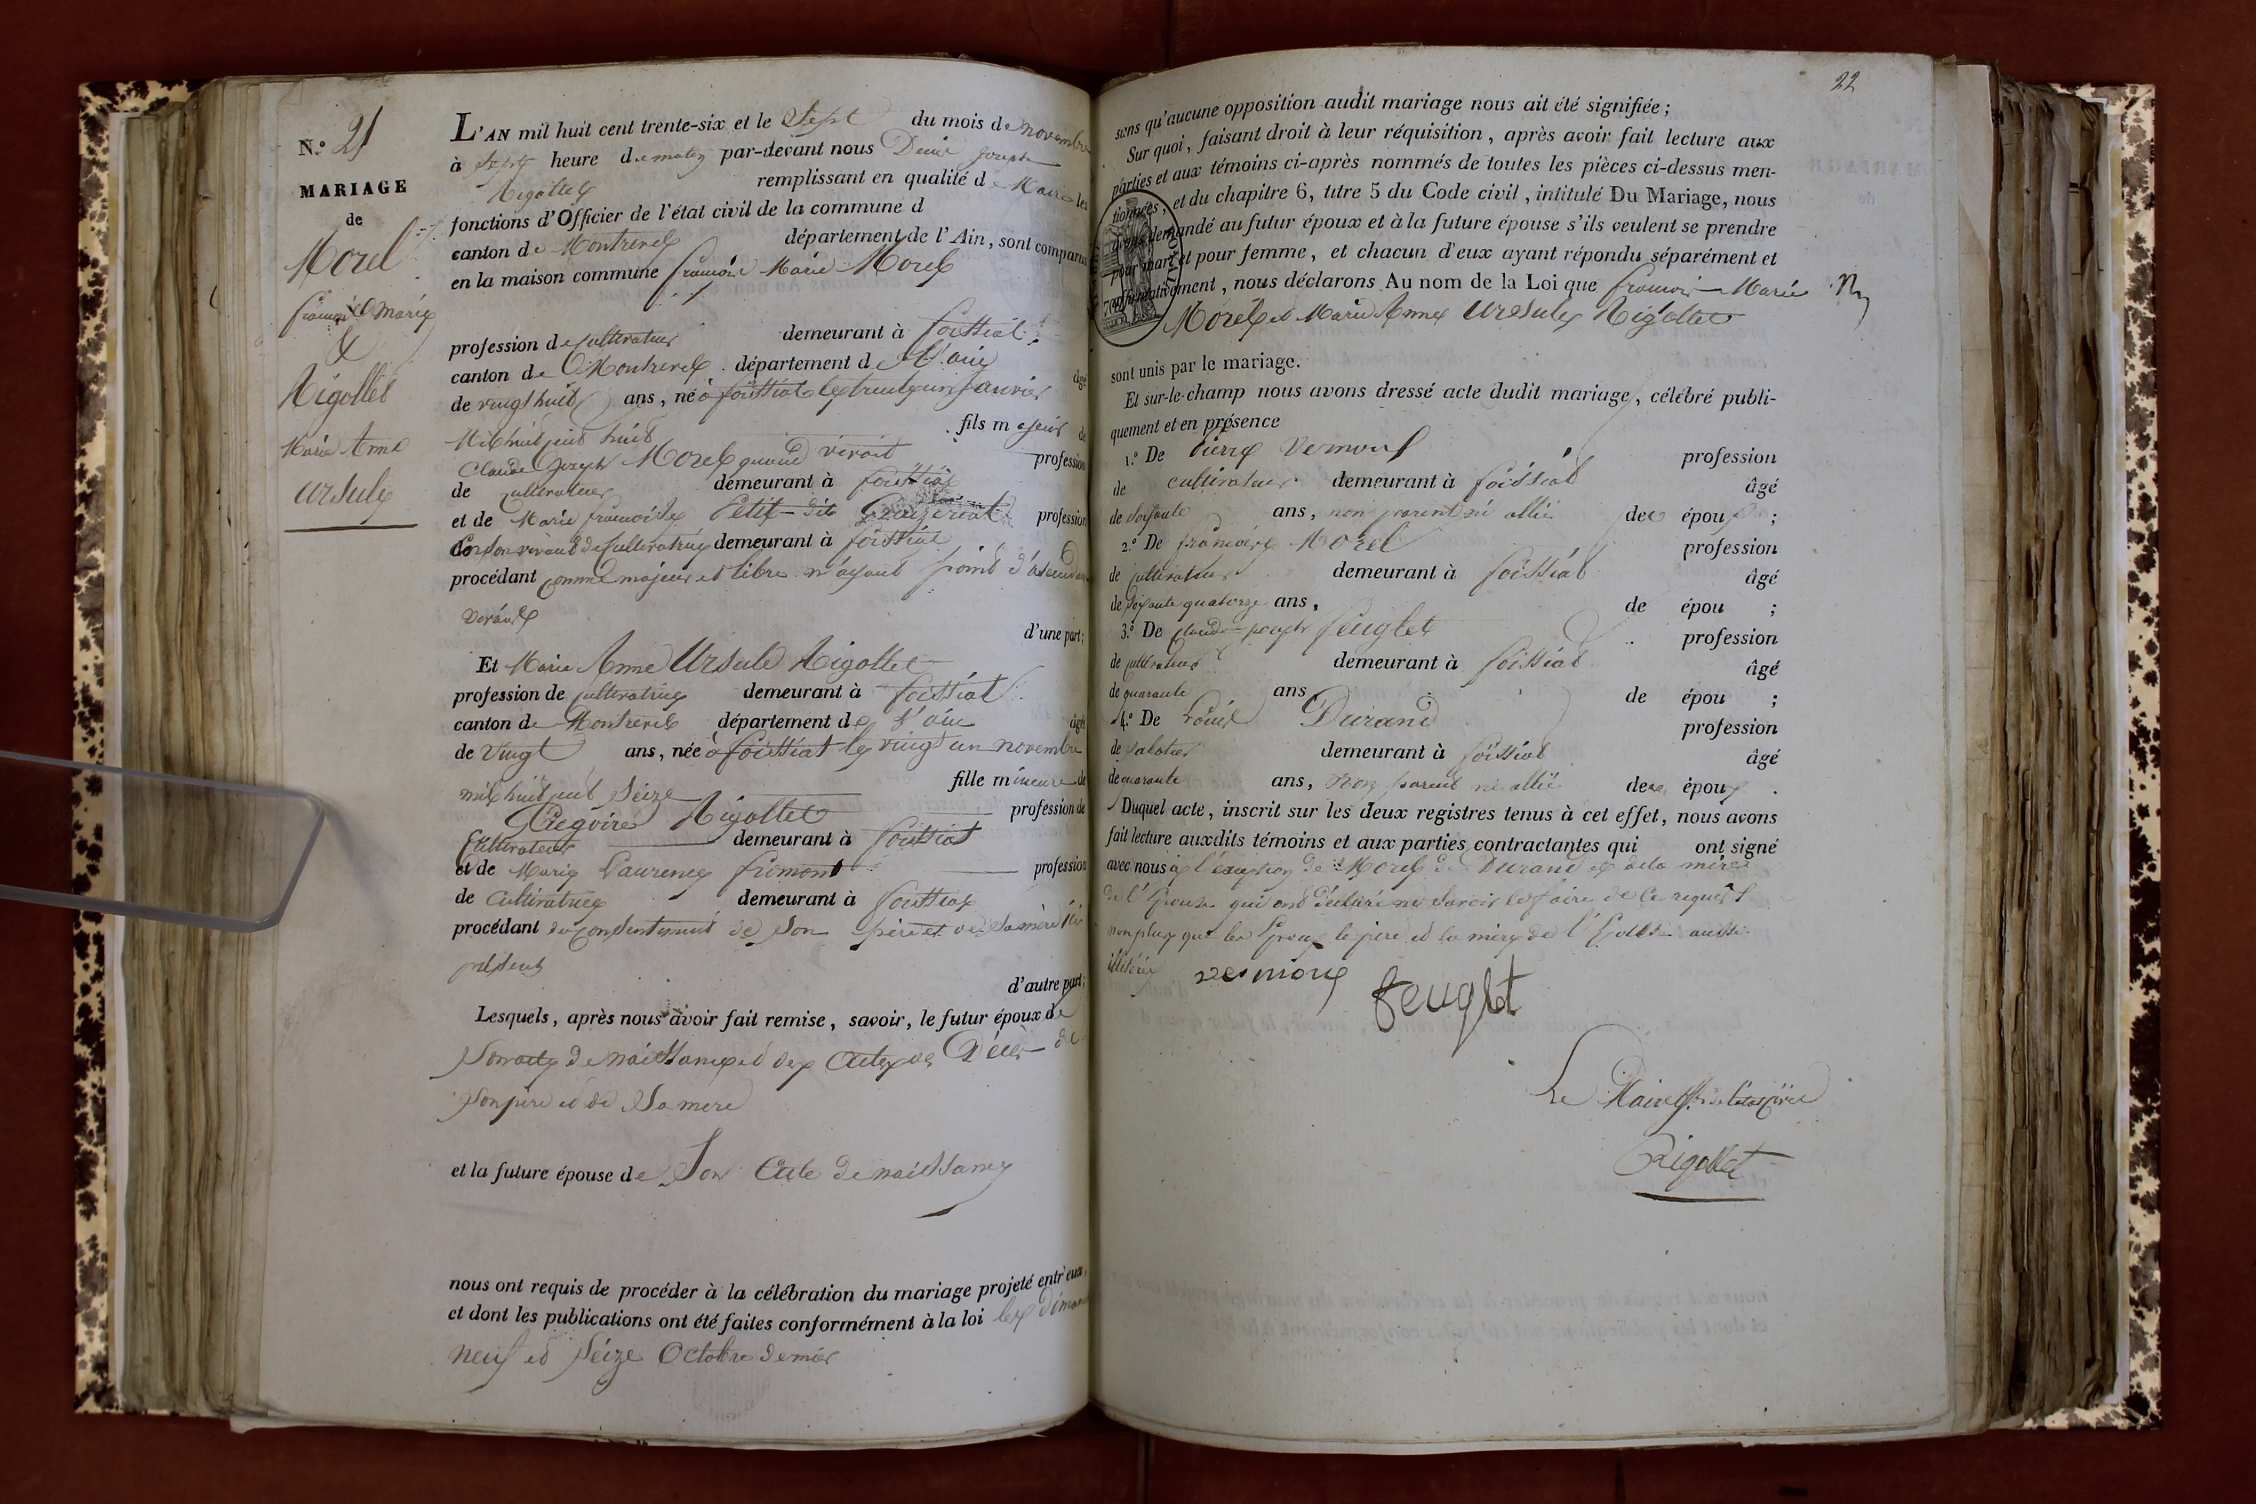 N.º 21
MARIAGE
de
Morel
françois Marie
&
Rigollet
Marie Anne
Ursule
L'AN mil huit cent trente-six et le Sept du mois de novembre
à Sept heure du matin par-devant nous Denis Joseph
Rigollet remplissant en qualité de Maire les
fonctions d'Officier de l'état civil de la commune d
canton de Montrevel département de l'Ain, sont comparus
en la maison commune françois Marie Morel
profession de cultivateur demeurant à foissiat
canton de Montrevel département de l'ain âgé
de vingt huit ans, né à foissiat le trente un janvier
mil huit cent huit fils majeur de
Claude Joseph Morel quand vivoit profession
de cultivateur demeurant à foissiat
et de Marie françoise Petit dit profession
de son vivant de cultivatrice demeurant à foissiat
procédant comme majeur et libre n'ayant point d'ascendans
vivants
d'une part;
Et Marie Anne Ursule Rigollet
profession de cultivatrice demeurant à foissiat
canton de Montrevel département de l'ain âgée
de vingt ans, née à foissiat le vingt un novembre
mil huit cent seize fille mineure de
Grégoire Rigollet profession de
cultivateur demeurant à foissiat
et de Marie Laurence fromont profession
de cultivatrice demeurant à foissiat
procédant du consentement de son père et de sa mère ici
présents
d'autre part;
Lesquels, après nous avoir fait remise, savoir, le futur époux de
son acte de naissance et des actes de décès de
son père et de sa mere
et la future épouse de son acte de naissance
nous ont requis de procéder à la célébration du mariage projeté entr'eux,
et dont les publications ont été faites conformément à la loi les dimanches
neuf et seize octobre dernier
22
sions qu'aucune opposition audit mariage nous ait été signifiée;
Sur quoi, faisant droit à leur réquisition, après avoir fait lecture aux
parties et aux témoins ci-après nommés de toutes les pièces ci-dessus men-
tionnées, et du chapitre 6, titre 5 du Code civil, intitulé Du Mariage, nous
avons demandé au futur époux et à la future épouse s'ils veulent se prendre
pour mari et pour femme, et chacun d'eux ayant répondu séparément et
affirmativement, nous déclarons Au nom de la Loi que françois Marie
Morel et Marie Anne Ursule Rigollet
sont unis par le mariage.
Et sur-le-champ nous avons dressé acte dudit mariage, célébré publi-
quement et en présence
1.º De Pierre Vermoux profession
de cultivateur demeurant à foissiat âgé
de soixante ans, non parent ni allié des époux;
2.º De françois Morel profession
de cultivateur demeurant à foissiat âgé
de soixante quatorze ans, de épou ;
3.º De Claude joseph feuglet profession
de cultivateur demeurant à foissiat âgé
de quarante ans de épou ;
4.º De Louis Durand profession
de sabotier demeurant à foissiat âgé
de quarante ans, non parent ni allié des époux.
Duquel acte, inscrit sur les deux registres tenus à cet effet, nous avons
fait lecture auxdits témoins et aux parties contractantes qui ont signé
avec nous à l'exception de Morel de Durand et de la mère
de l'épouse qui ont déclaré ne savoir le faire de ce requis
non plus que les époux le père et la mère de l'épouse aussi
vermoux
feuglet
Le Maire off. de l'état civil
Rigollet